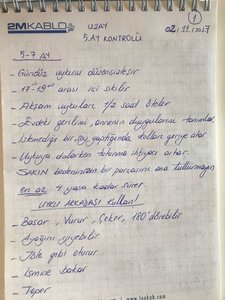 2M KABLO
UZAY
02/11/2017
1
5.AY KONTROLÜ
5-7 AY
- Gündüz uykusu düzensizleşir
- 17-19 arası içi sıkılır
- Akşam uykuları 1/2 saat öteler
- Evdeki gerilimi, annenin duygularını tanımlar
- İstemediği bir şey yaptığında kolları geriye atar
- Uykuya dalarken tutunma ihtiyacı artar.
SAKIN bedeninizden bir parçasını ona tutturmayın
En az 4 yaşa kadar sürer
UYKU ARKADAŞI Kullan!
- Basar, Vurur, Çeker, 180° dönebilir
- Ayağını yiyebilir
- Jöle gibi oturur
- İsmine bakar
- Teper